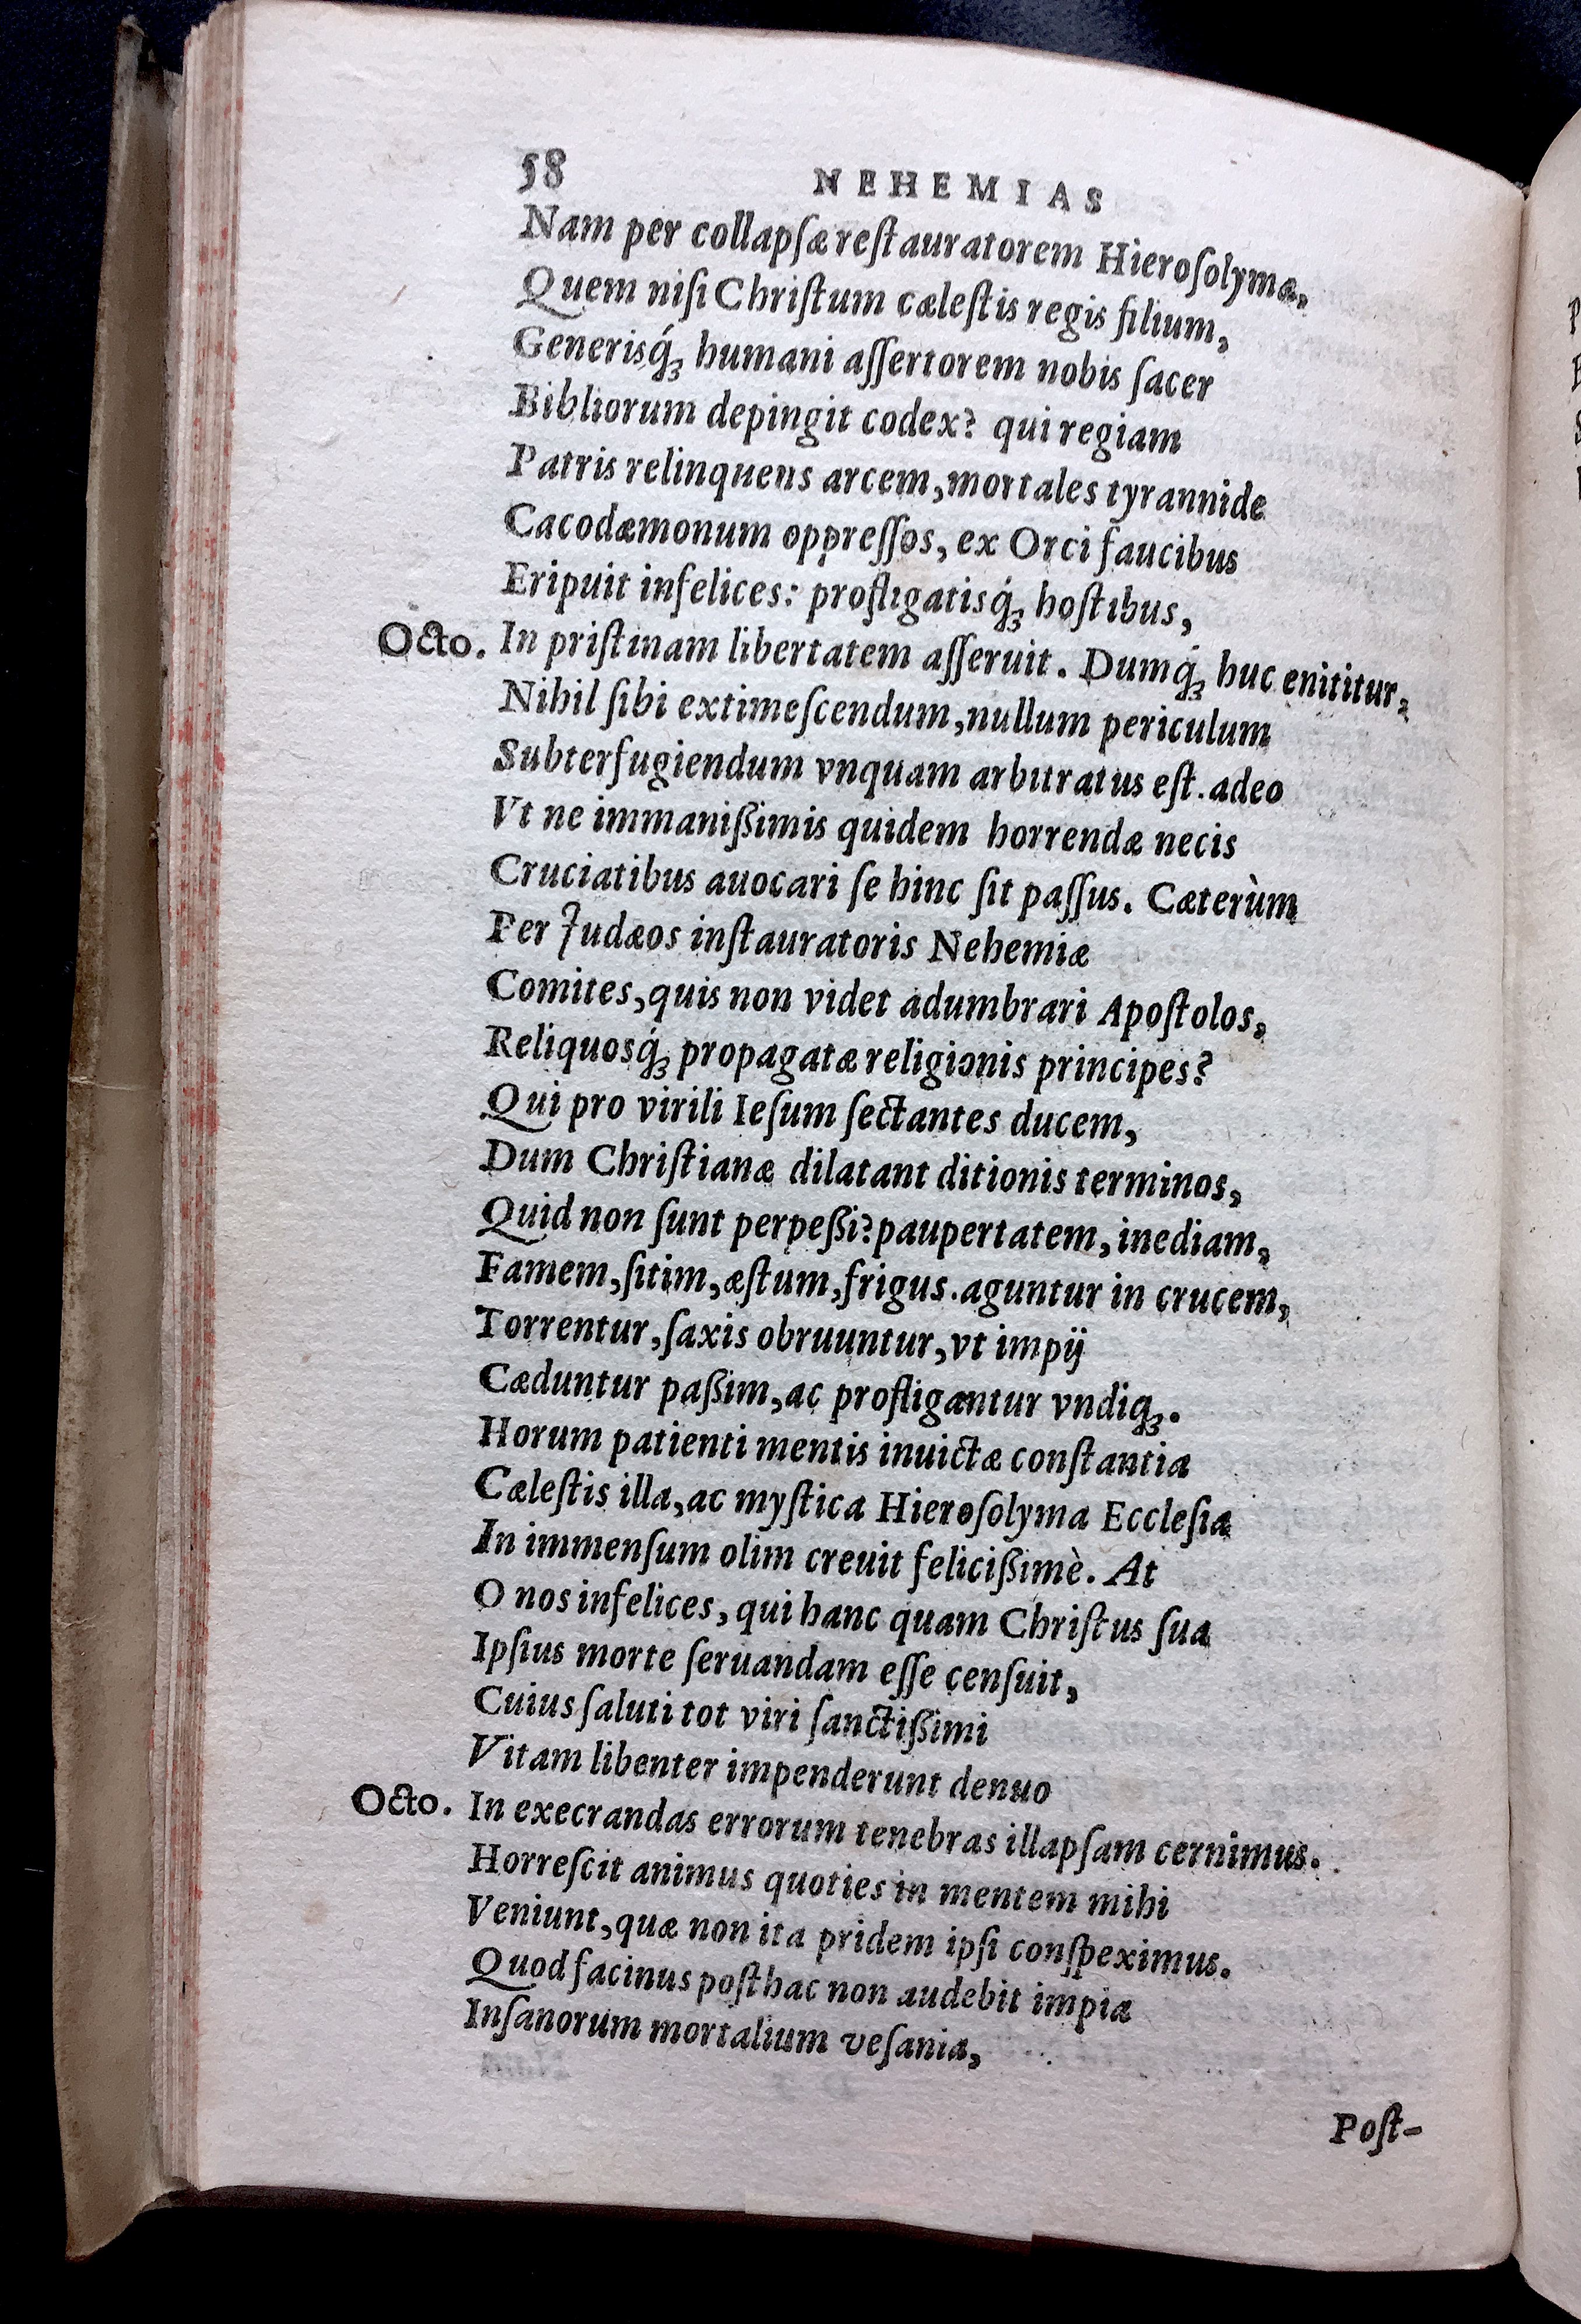 58 NEHEMIAS
Nam per collapſæ reſtauratorem Hieroſolymæ,
Quem niſi Chriſtum cæleſtis regis filium,
Generisq́ꝫ humani aſſertorem nobis ſacer
Bibliorum depingit codex? qui regiam
Patris relinquens arcem, mortales tyrannide
Cacodæmonum oppreſſos, ex Orci faucibus
Eripuit infelices: profligatisq́ꝫ hoſtibus,
Octo. In priſtinam libertatem aſſeruit. Dumq́ꝫ huc enititur,
Nihil ſibi extimeſcendum, nullum periculum
Subterfugiendum vnquam arbitratus eſt. adeo
Vt ne immanißimis quidem horrendæ necis
Cruciatibus auocari ſe hinc ſit paſſus. Cæterùm
Per Judæos inſtauratoris Nehemiæ
Comites, quis non videt adumbrari Apoſtolos,
Reliquosq́ꝫ propagatæ religionis principes?
Qui pro virili Ieſum ſectantes ducem,
Dum Chriſtianæ dilatant ditionis terminos,
Quid non ſunt perpeßi? paupertatem, inediam,
Famem, ſitim, æſtum, frigus. aguntur in crucem,
Torrentur, ſaxis obruuntur, vt impij
Cæduntur paßim, ac profligantur vndiqꝫ.
Horum patienti mentis inuictæ conſtantia
Cæleſtis illa, ac myſtica Hieroſolyma Eccleſia
In immenſum olim creuit felicißimè. At
O nos infelices, qui hanc quam Chriſtus ſua
Ipſius morte ſeruandam eſſe cenſuit,
Cuius ſaluti tot viri ſanctißimi
Vitam libenter impenderunt denuo
Octo. In execrandas errorum tenebras illapſam cernimus.
Horreſcit animus quoties in mentem mihi
Veniunt, quæ non ita pridem ipſi conſpeximus.
Quod facinus poſthac non audebit impia
Inſanorum mortalium veſania,
Poſt-